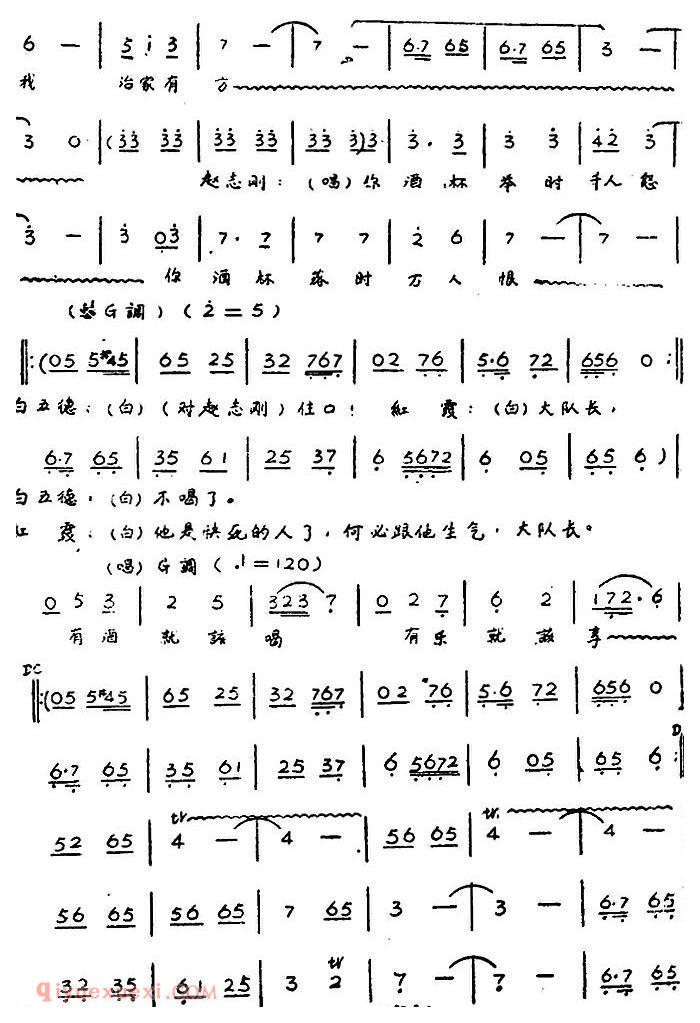 6 — | 5 i 3 | 7 — | 7 — | 6·7 65 | 6·7 65 | 3 — |
我 治家有方
3 0 (33 33 | 33 33 | 33 3) 3 | 3· 3 | 3 3 | 42 3 |
赵志刚：（唱）你酒杯举时千人怨
3 — | 3 03 | 7· 7 | 7 7 | 2 6 | 7 — | 7 — |
你酒杯落时万人恨
G调）（2=5）
‖: (05 5#45 | 65 25 | 32 767 | 02 76 | 5·6 72 | 656 0 :‖
白五德：（白）（对赵志刚）住口！ 红霞：（白）大队长，
6·7 65 | 35 61 | 25 37 | 6 5672 | 6 05 | 65 6 )
白五德：（白）不喝了。
红霞：（白）他是快死的人了，何必跟他生气，大队长。
（唱）G调（♩=120）
0 5 3 | 2 5 | 323 7 | 0 2 7 | 6 2 | 172·6 |
有酒就该喝 有乐就该享
DC
‖: (05 5#45 | 65 25 | 32 767 | 02 76 | 5·6 72 | 656 0 |
D
6·7 65 | 35 61 | 25 37 | 6 5672 | 6 05 | 65 6 :‖
tr tr
52 65 | 4 — | 4 — | 56 65 | 4 — | 4 — |
56 65 | 56 65 | 7 65 | 3 — | 3 — | 6·7 65 |
tr
32 35 | 61 25 | 3 2 | 7 — | 7 — | 6·7 65 |